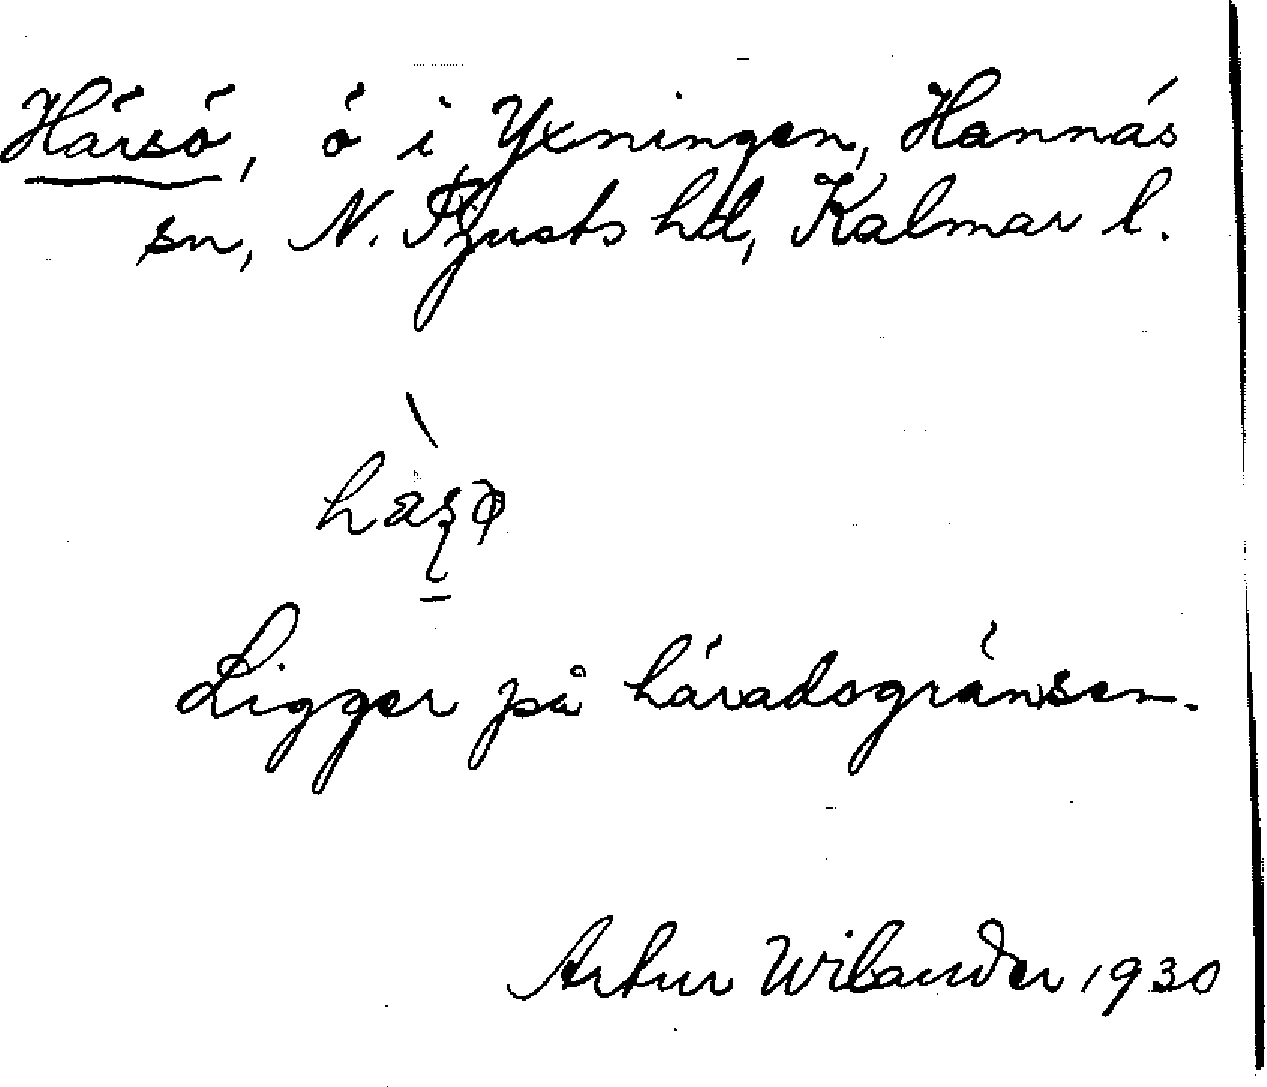 Härsö, ö i Yxningen, Hannäs
sn, N. Tjusts hd, Kalmar l.
Ligger på häradsgränsen.
Artur Wilander 1930